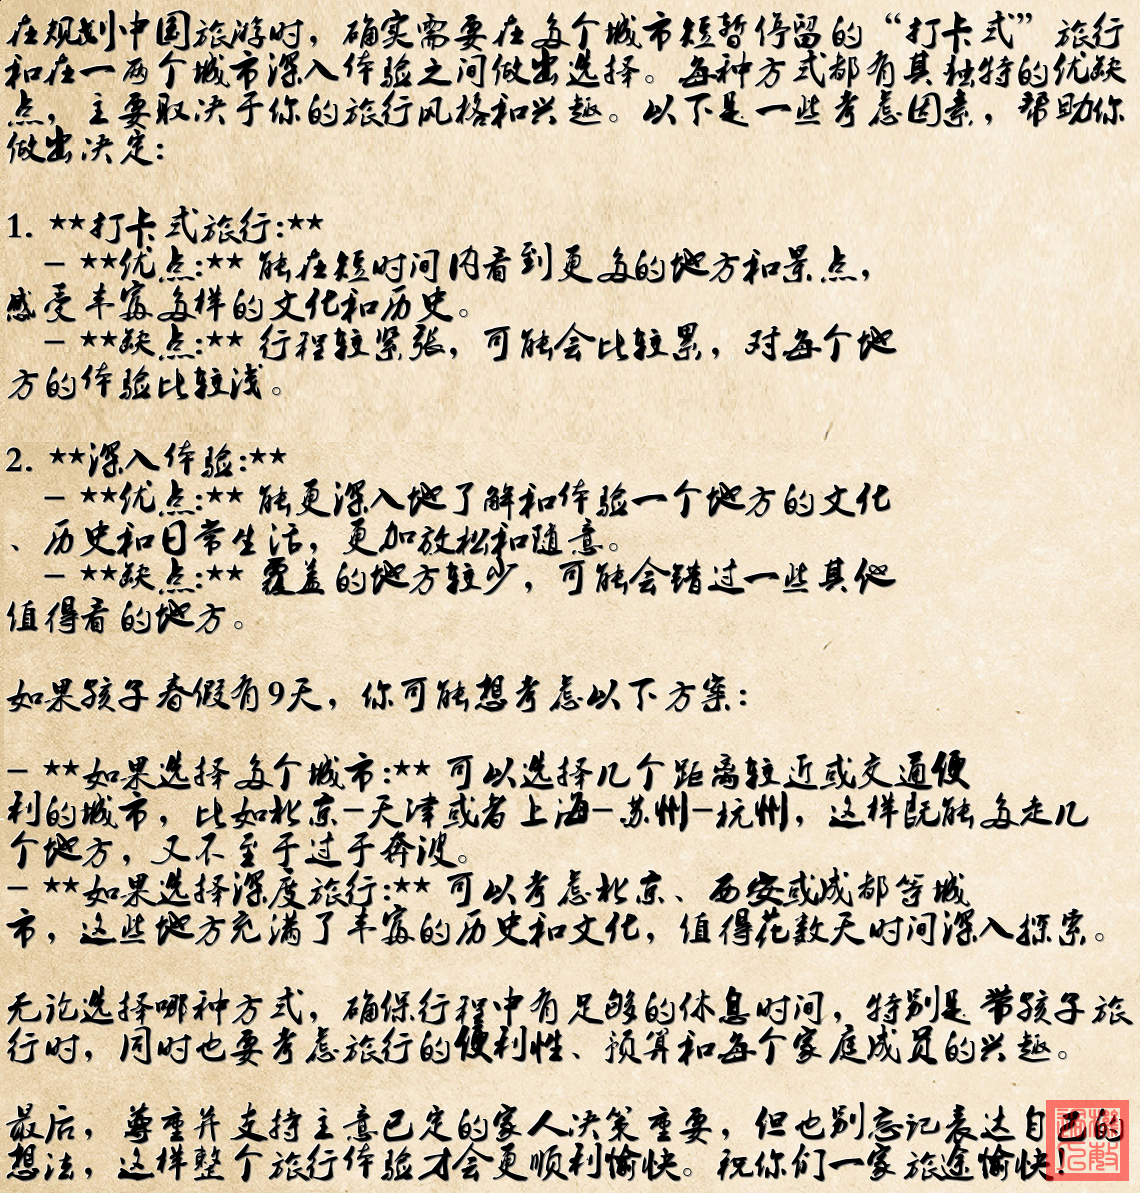 在规划中国旅游时，确实需要在多个城市短暂停留的“打卡式”旅行
和在一两个城市深入体验之间做出选择。每种方式都有其独特的优缺
点，主要取决于你的旅行风格和兴趣。以下是一些考虑因素，帮助你
做出决定：
1. **打卡式旅行:**
– **优点:** 能在短时间内看到更多的地方和景点，
感受丰富多样的文化和历史。
– **缺点:** 行程较紧张，可能会比较累，对每个地
方的体验比较浅。
2. **深入体验:**
– **优点:** 能更深入地了解和体验一个地方的文化
、历史和日常生活，更加放松和随意。
– **缺点:** 覆盖的地方较少，可能会错过一些其他
值得看的地方。
如果孩子春假有9天，你可能想考虑以下方案：
– **如果选择多个城市:** 可以选择几个距离较近或交通便
利的城市，比如北京–天津或者上海–苏州–杭州，这样既能多走几
个地方，又不至于过于奔波。
– **如果选择深度旅行:** 可以考虑北京、西安或成都等城
市，这些地方充满了丰富的历史和文化，值得花数天时间深入探索。
无论选择哪种方式，确保行程中有足够的休息时间，特别是带孩子旅
行时，同时也要考虑旅行的便利性、预算和每个家庭成员的兴趣。
最后，尊重并支持主意已定的家人决策重要，但也别忘记表达自己的
想法，这样整个旅行体验才会更顺利愉快。祝你们一家旅途愉快！